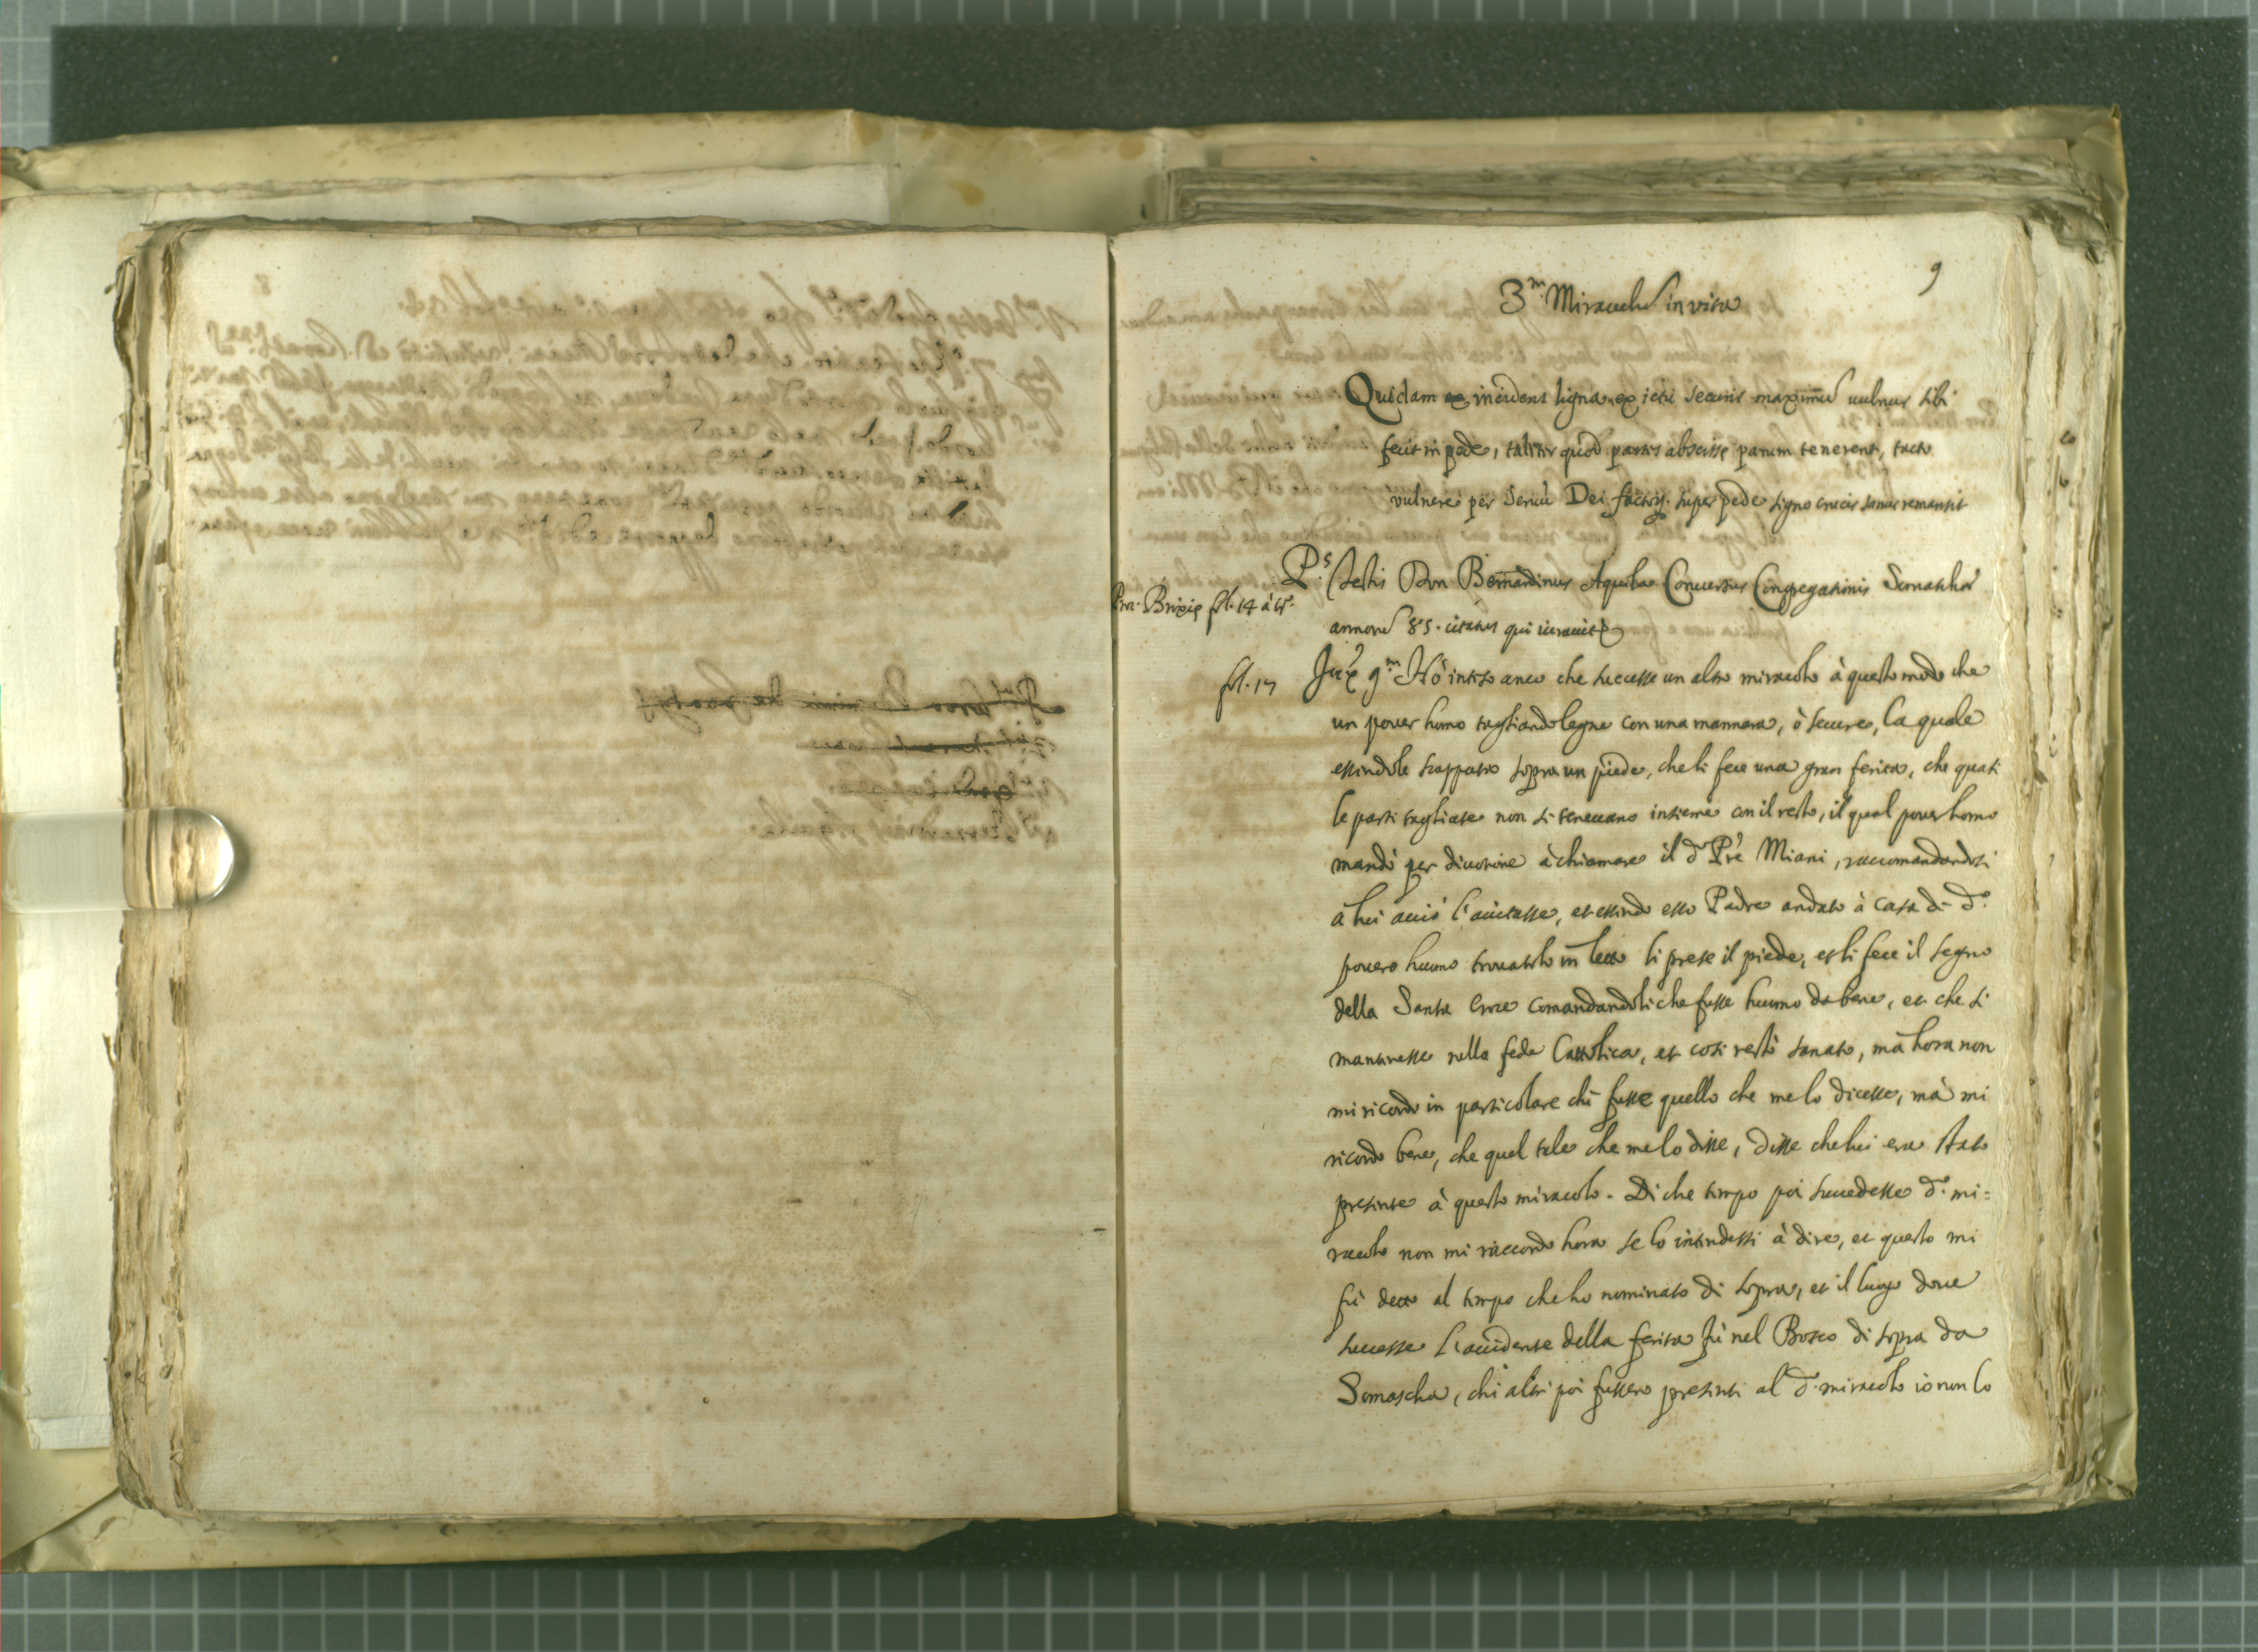 9
3.m Miraculu in vita
Quidam incidens ligna ex ictu securis maximu uulnus sibi
fecit in pede, taliter quod partes abscisse parum tenerent, tacto
vulnere per Seruu Dei factoq. super pede signo crucis sanus remansit
P.s testis Don Bernardinus Aquila Conuersus Congregationis Somascha
Pro. Brixie fol. 14 à tº.
annoru 85. citatus qui iurauit
fol. 17
Jux 9.m Hò inteso anco che successe un altro miracolo à questo modo che
un pouer homo tagliando legne con una mannara, ò secure, la quale
essendole scappata sopra un piede, che li fece una gran ferita, che quasi
le parti tagliate non si teneuano insieme con il resto, il qual pouer homo
mandò per diuotione à chiamare il dº Pre Miani, raccomandandosi
à lui acciò l'aiutasse, et essendo esso Padre andato à casa di dº.
pouero huomo trouatolo in letto li prese il piede, et li fece il segno
della Santa Croce comandandoli che fusse huomo da bene, et che si
mantenesse nella fede Cattolica, et così restò sanato, mà hora non
mi ricordo in particolare chi fusse quello che me lo dicesse, mà mi
ricordo bene, che quel tale che me lo disse, disse che lui era stato
presente à questo miracolo. Di che tempo poi succedesse dº. mi=
racolo non mi raccordo hora se lo intendessi à dire, et questo mi
fù detto al tempo che ho nominato di sopra, et il luogo doue
successe l'accidente della ferita fù nel Bosco di sopra da
Somascha, chi altri poi fussero presenti al dº. miracolo io non lo